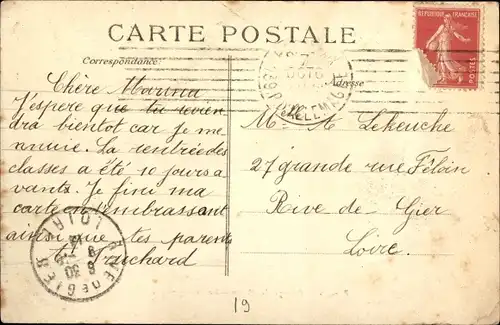 CARTE POSTALE
Correspondance
Adresse
RÉPUBLIQUE FRANÇAISE
Chère Marina
J'espere que tu revien
dra bientot car je me
ennuie. La rentrée des
classes a été 10 jours a
vants. Je fini ma
carte en t'embrassant
ainsi que tes parents
M A Lekeuche
27 grande rue Féloin
Rive de Gier
Loire.
RIVE DE GIER
LOIRE
19